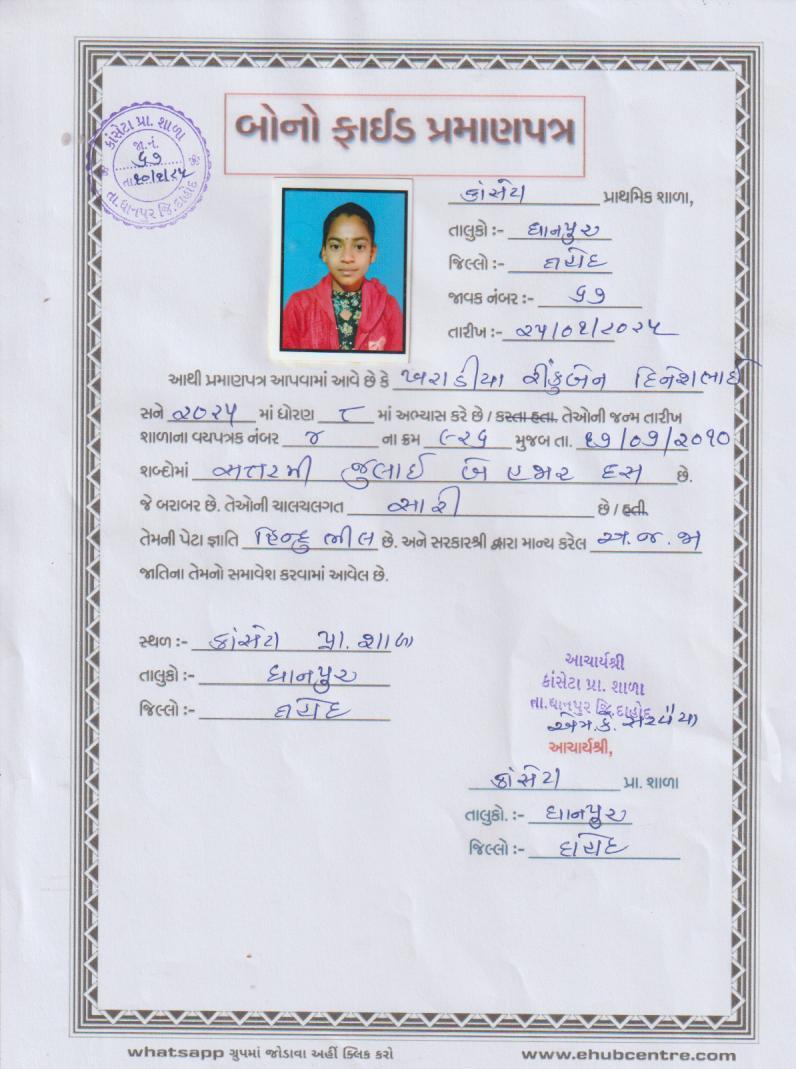 બોનો ફાઈડ પ્રમાણપત્ર
કાંસેટા પ્રા. શાળા
જા.નં.
૬૭
તા.
તા.ધાનપુર જિ.દાહોદ
કાંસેટા પ્રાથમિક શાળા,
તાલુકો :- ધાનપુર
જિલ્લો :- દાહોદ
જાવક નંબર :- ૬૭
તારીખ :- ૨૫/૦૧/૨૦૨૫
આથી પ્રમાણપત્ર આપવામાં આવે છે કે ખરાડીયા રીંકુબેન દિનેશભાઈ
સને ૨૦૨૫ માં ધોરણ ૮ માં અભ્યાસ કરે છે / કરતા હતા. તેઓની જન્મ તારીખ
શાળાના વયપત્રક નંબર ૪ ના ક્રમ ૯૨૬ મુજબ તા. ૧૭/૦૭/૨૦૧૦
શબ્દોમાં સત્તરમી જુલાઈ બે હજાર દસ છે.
જે બરાબર છે. તેઓની ચાલચલગત સારી છે / હતી.
તેમની પેટા જ્ઞાતિ હિન્દુ ભીલ છે. અને સરકારશ્રી દ્વારા માન્ય કરેલ અ.જ.જા
જાતિના તેમનો સમાવેશ કરવામાં આવેલ છે.
સ્થળ :- કાંસેટા પ્રા. શાળા
તાલુકો :- ધાનપુર
જિલ્લો :- દાહોદ
આચાર્યશ્રી
કાંસેટા પ્રા. શાળા
તા.ધાનપુર જિ.દાહોદ
આચાર્યશ્રી,
કાંસેટા પ્રા. શાળા
તાલુકો. :- ધાનપુર
જિલ્લો :- દાહોદ
whatsapp ગ્રુપમાં જોડાવા અહીં ક્લિક કરો
www.ehubcentre.com